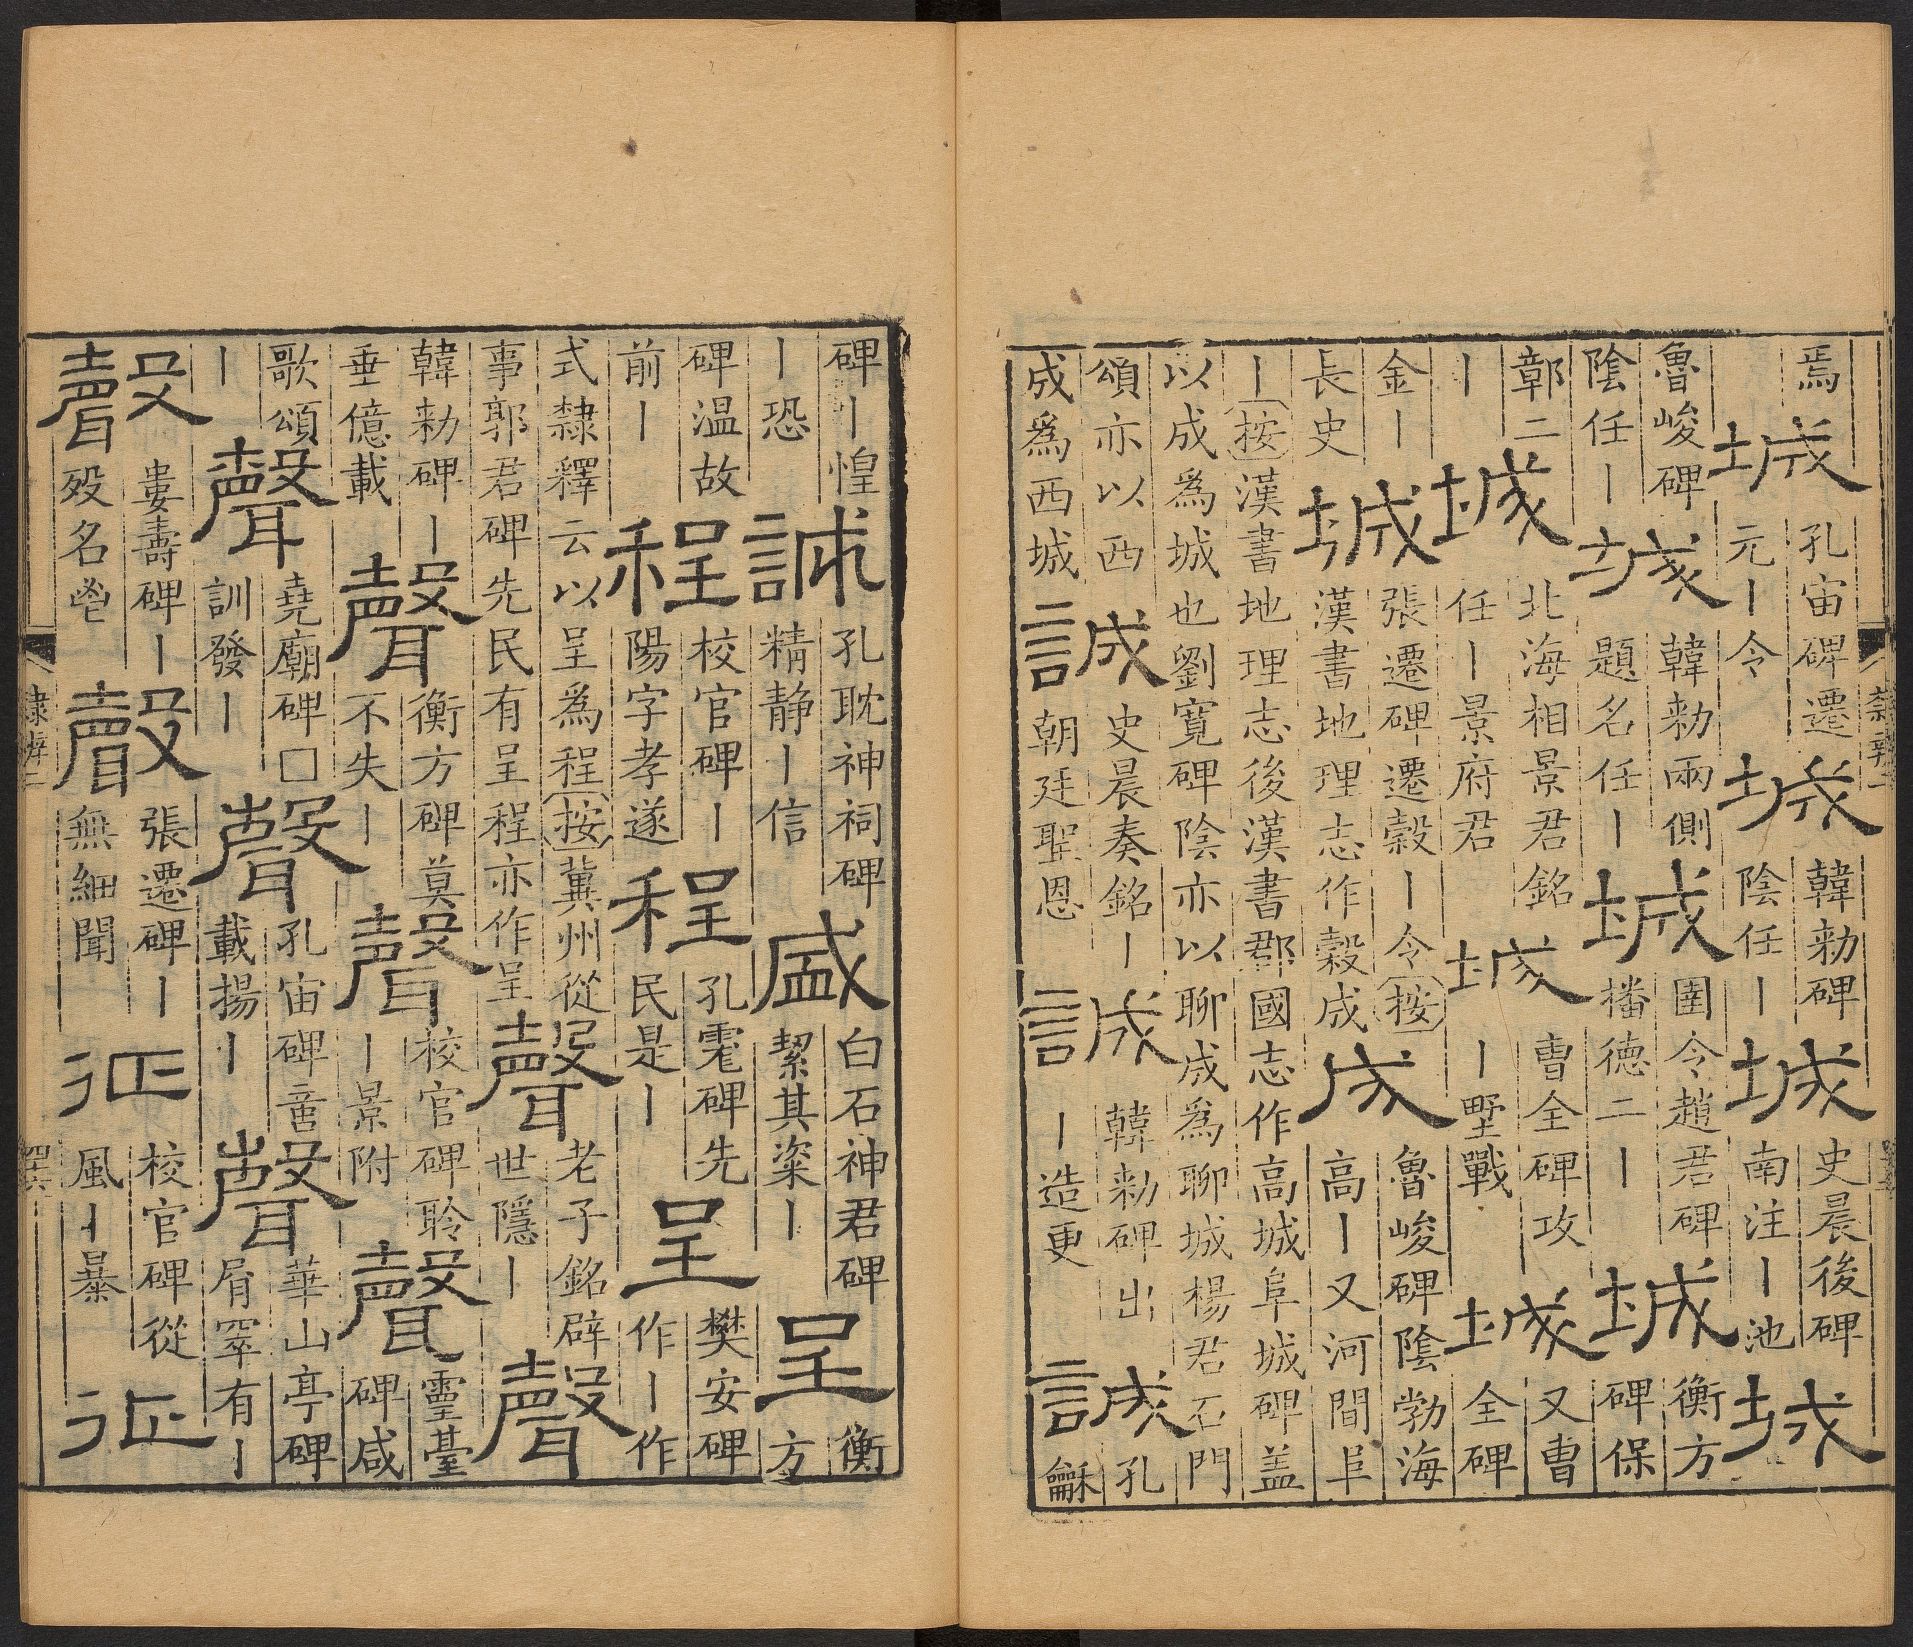 焉城孔宙碑遷元丨令城韓勑碑陰任丨城史晨後碑南注丨池城
魯峻碑陰任丨城韓勑兩側題名任丨城圉令趙君碑播德二丨城衡方碑保
鄣二丨城北海相景君銘任丨景府君城曹全碑攻丨墅戰城又曹全碑
金丨長史城張遷碑遷穀丨令按漢書地理志作穀成成魯峻碑陰勃海高丨又河間阜
丨按漢書地理志後漢書郡國志作高城阜城碑盖
以成爲城也劉寬碑陰亦以聊成爲聊城楊君石門
頌亦以西成爲西城誠史晨奏銘丨朝廷聖恩誠韓勑碑出丨造更誠孔龢
隸辨二
碑丨惶丨恐誠孔耽神祠碑精静丨信盛白石神君碑絜其粢丨呈衡方
碑温故前丨程校官碑丨陽字孝遂程孔碑先民是丨呈樊安碑作丨作
式隸釋云以呈爲程按冀州從事郭君碑先民有呈程亦作呈聲老子銘辟世隱丨聲
韓勑碑丨垂億載聲衡方碑莫不失丨聲校官碑聆丨景附聲靈臺碑咸
歌頌丨聲堯廟碑□訓發丨聲孔宙碑音載揚丨聲華山亭碑屑窣有丨
聲婁壽碑丨歿名聲張遷碑丨無細聞征校官碑從風丨暴征
隸辨二 四十六